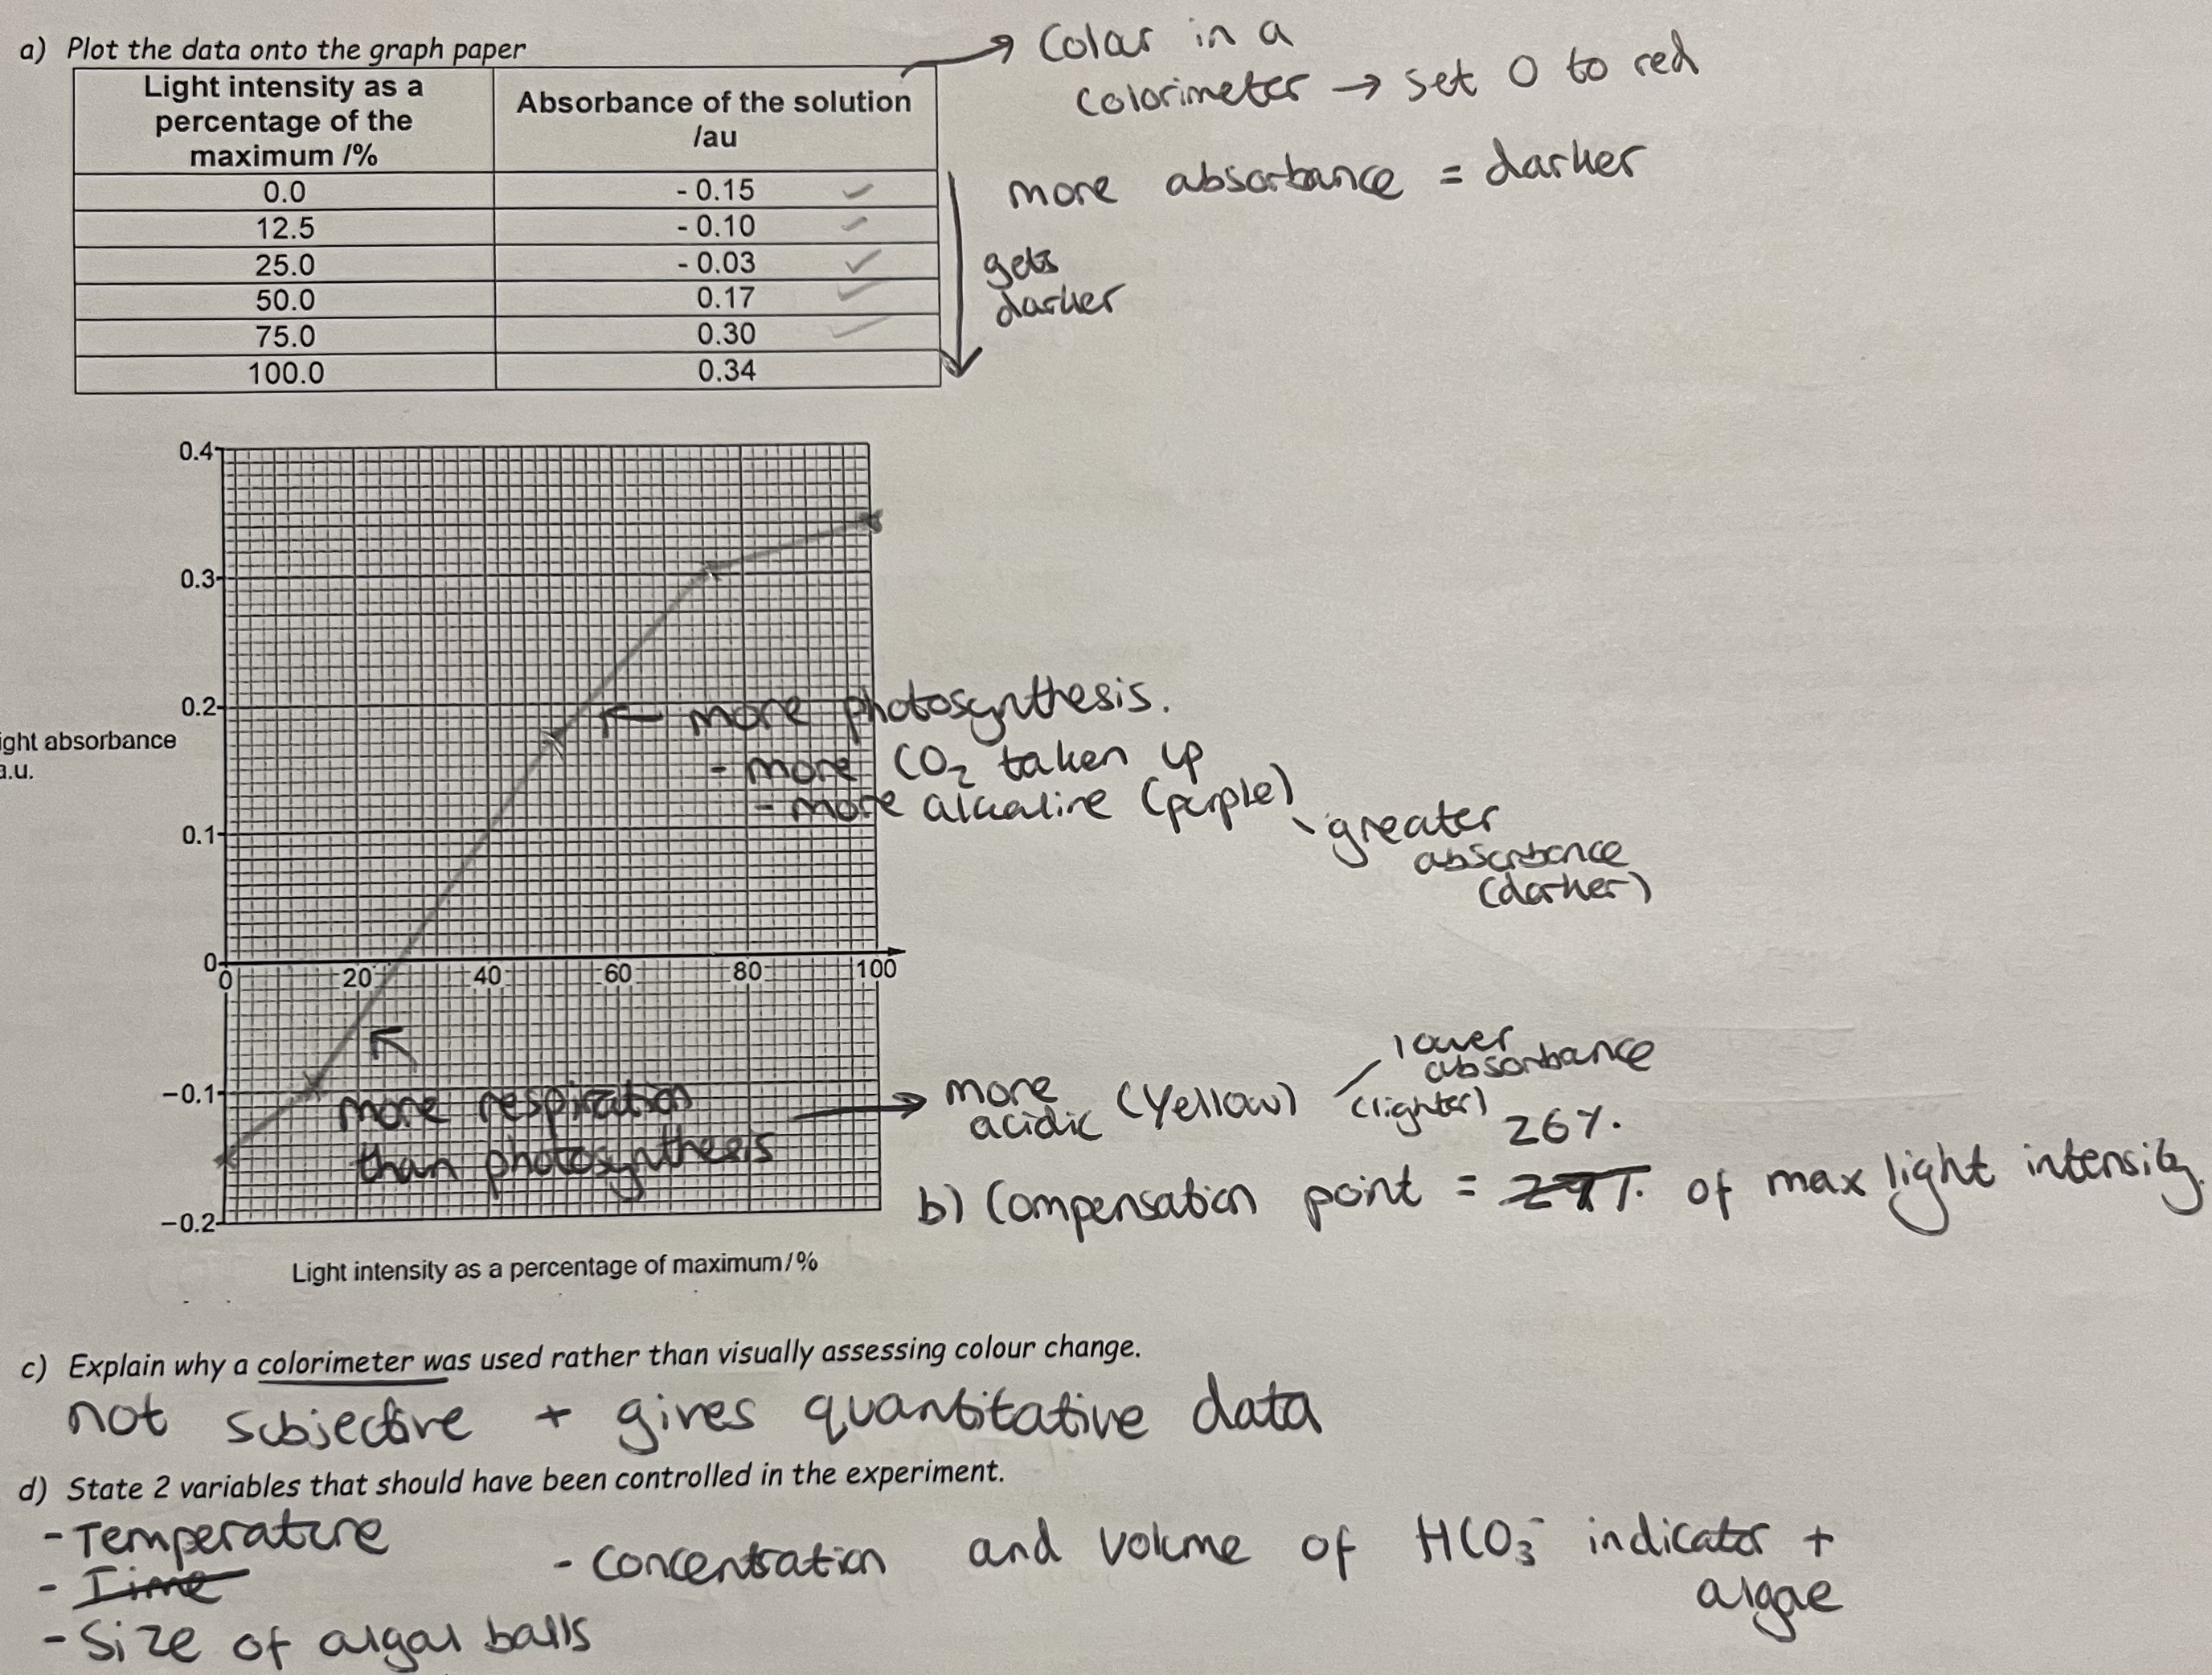 a) Plot the data onto the graph paper
Light intensity as a percentage of the maximum /% Absorbance of the solution /au
0.0 - 0.15
12.5 - 0.10
25.0 - 0.03
50.0 0.17
75.0 0.30
100.0 0.34
→ Colour in a
colorimeter → set 0 to red
more absorbance = darker
gets
darker
0.4
0.3
0.2
0.1
0
-0.1
-0.2
0 20 40 60 80 100
ight absorbance
a.u.
more photosynthesis.
- more CO₂ taken up
- more alkaline (purple)
greater
absorbance
(darker)
more respiration
than photosynthesis
more
acidic (yellow)
lower
absorbance
(lighter)
26%.
b) Compensation point = of max light intensity.
Light intensity as a percentage of maximum/%
c) Explain why a colorimeter was used rather than visually assessing colour change.
not subjective + gives quantitative data
d) State 2 variables that should have been controlled in the experiment.
- Temperature
- Time
- Size of algal balls
- Concentration and volume of HCO₃⁻ indicator +
algae